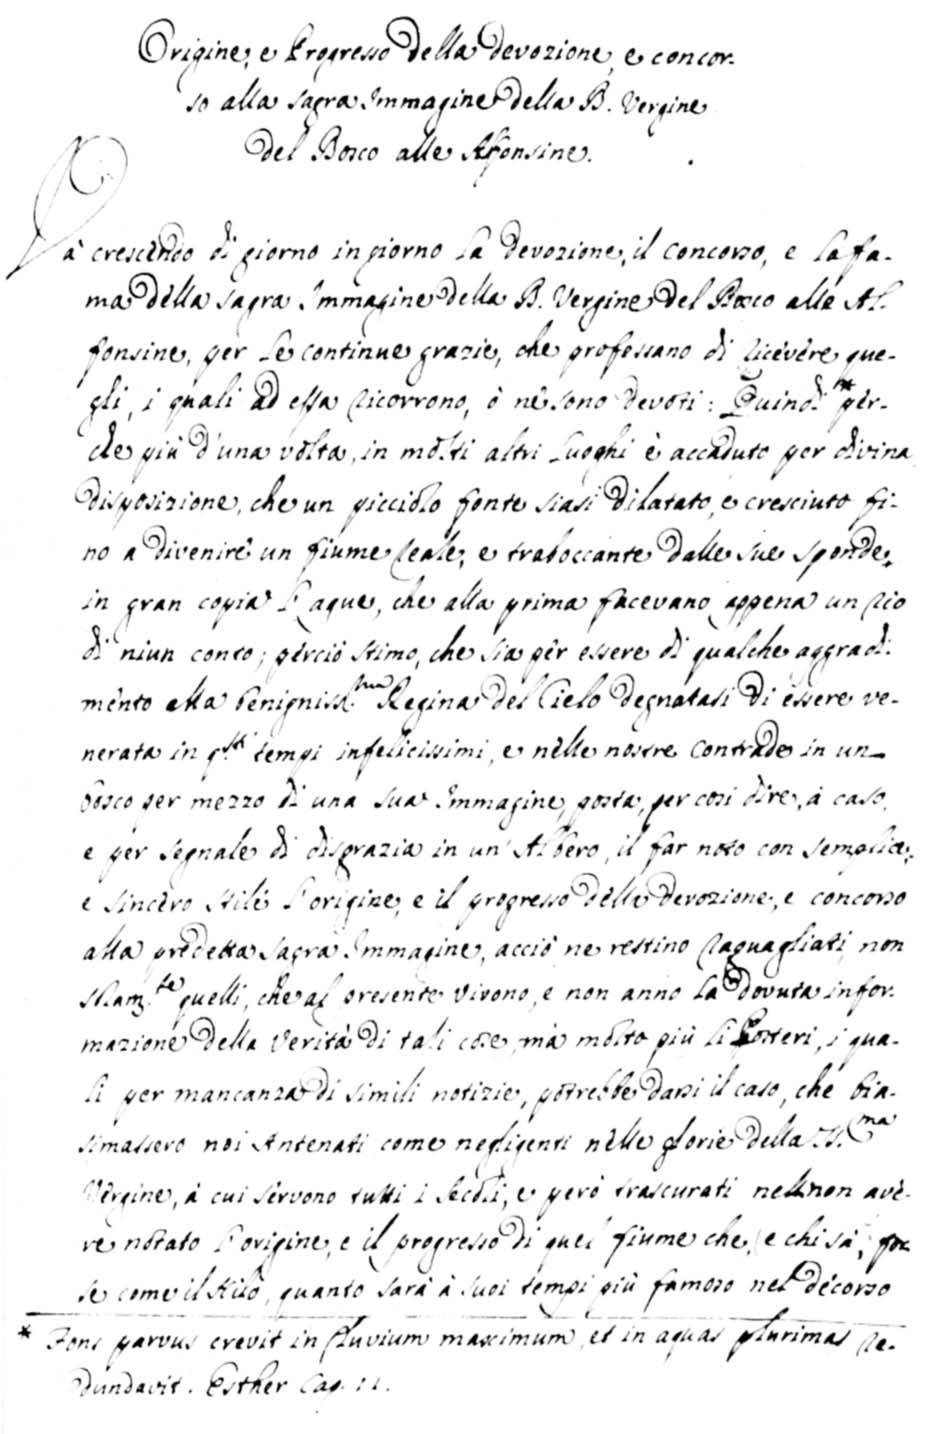 Origine, e Progresso della devozione, e concor-
so alla sagra Immagine della B. Vergine
del Bosco alle Alfonsine.
Và crescendo di giorno in giorno la devozione, il concorso, e la fa-
ma della sagra Immagine della B. Vergine del Bosco alle Al-
fonsine, per le continue grazie, che professano di ricevere que-
gli, i quali ad essa ricorrono, ò ne sono devoti: Quindi * per-
che più d'una volta, in molti altri luoghi è accaduto per divina
disposizione, che un picciolo fonte siasi dilatato, e cresciuto fi-
no a divenire un fiume reale, e traboccante dalle sue sponde,
in gran copia l'aque, che alla prima facevano appena un rio
di niun conto; perciò stimo, che sia per essere di qualche aggradi-
mento alla benigniss.ma Regina del Cielo degnatasi di essere ve-
nerata in q.sti tempi infelicissimi, e nelle nostre contrade in un
bosco per mezzo di una sua Immagine, posta, per così dire, à caso,
e per segnale di disgrazia in un' Albero, il far noto con semplice,
e sincero stile l'origine, e il progresso della devozione, e concorso
alla predetta sagra Immagine, acciò ne restino raguagliati non
sol.am.te quelli, che al presente vivono, e non anno la dovuta infor-
mazione della verità di tali cose, mà molto più li Posteri, i qua-
li per mancanza di simili notizie, potrebbe darsi il caso, che bia-
simassero noi Antenati come negligenti nelle glorie della SS.ma
Vergine, à cui servono tutti i secoli, e però trascurati nell non avè-
re notato l'origine, e il progresso di quel fiume che, (e chi sà, for-
se come il Nilo, quanto sarà à suoi tempi più famoso nel decorso
* Fons parvus crevit in fluvium maximum, et in aquas plurimas re-
dundavit. Esther Cap. 11.